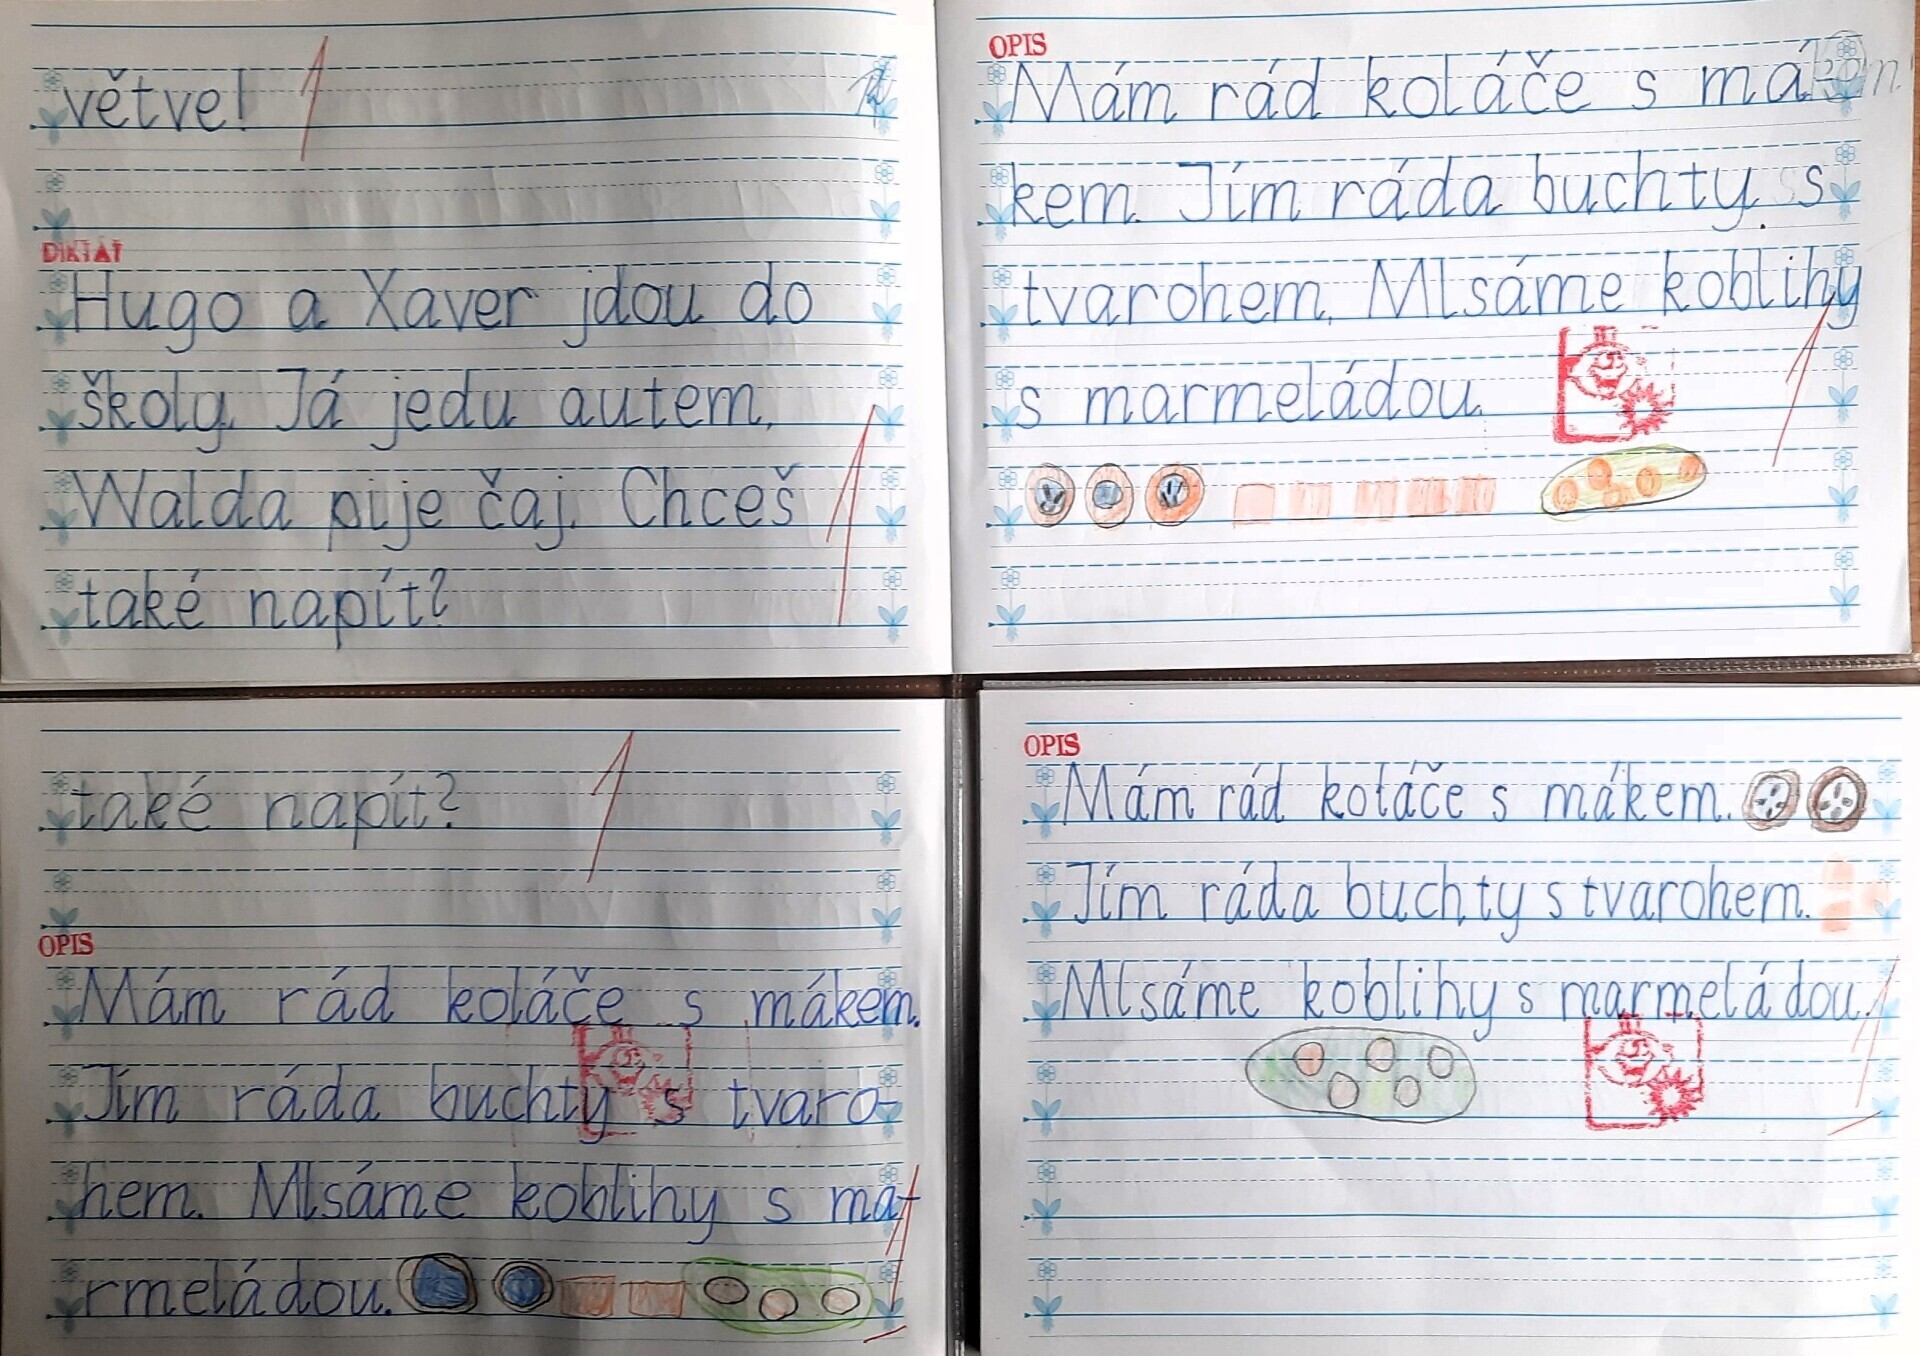 větve!
DIKTÁT
Hugo a Xaver jdou do
školy. Já jedu autem.
Walda pije čaj. Chceš
také napít?
OPIS
Mám rád koláče s má
kem. Jím ráda buchty s
tvarohem. Mlsáme koblihy
s marmeládou.
také napít?
OPIS
Mám rád koláče s mákem.
Jím ráda buchty s tvaro-
hem. Mlsáme koblihy s ma-
rmeládou.
OPIS
Mám rád koláče s mákem.
Jím ráda buchty s tvarohem.
Mlsáme koblihy s marmeládou.